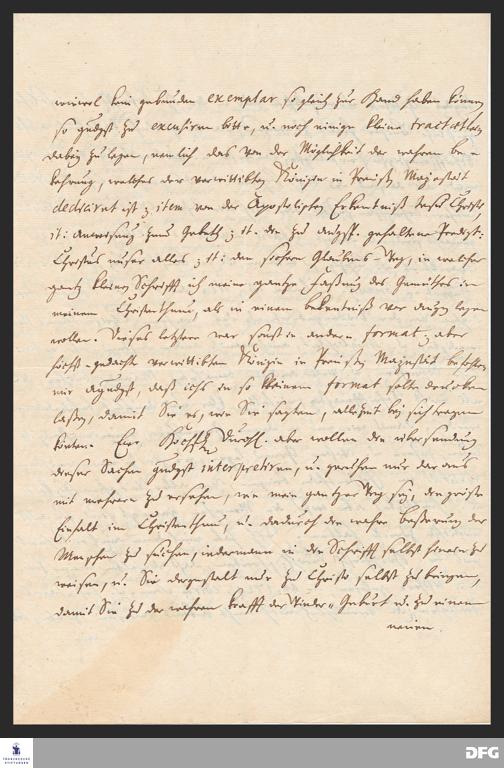 wiewol kein gebunden exemplar so gleich zur Hand haben können,
so gndgst zu excusiren bitte, u. noch einige kleine tractætlein
dabey zu legen, nemlich das von der Möglichkeit der wahren Be-
kehrung, welches der verwittibten Königin in Preußen Majestät
dediciret ist; item von der Apostolischen Erkentniß Jesu Christi,
it: Anweisung zum Gebeth; it. die zu augsp. gehaltene Predigt:
Christus unser alles; it: den sichern Glaubens-Weg, in welcher
gantz kleinen Schrifft ich meine gantze Faßung des Gemüthes in
meinem Christenthum, als in einem bekentniß vor augen legen
wollen. Dieses letztere war sonst in andern format, aber
höchst-gedachte verwittibten Königin in Preußen Majestät befohlen
mir agndgst, daß ichs in so kleinem format solte drucken
laßen, damit Sie es, wie Sie sagten, allezeit bey sich tragen
könten. Ew. Hochfstl. Durchl. aber wollen die übersendung
dieser Sachen gndgst interpretiren, u. geruhen nur daraus
mit mehrern zu ersehen, wie mein gantzer Weg sey, die größte
Einfalt im Christenthum, u. dadurch die wahre beßerung der
Menschen zu suchen, iederman in die Schrifft selbst hinein zu
weisen, u. Sie dergestalt nur zu Christo selbst zu bringen,
damit Sie zu der wahren krafft der Wieder-Geburt u. zu einem
neuen
FRANCKESCHE STIFTUNGEN
DFG